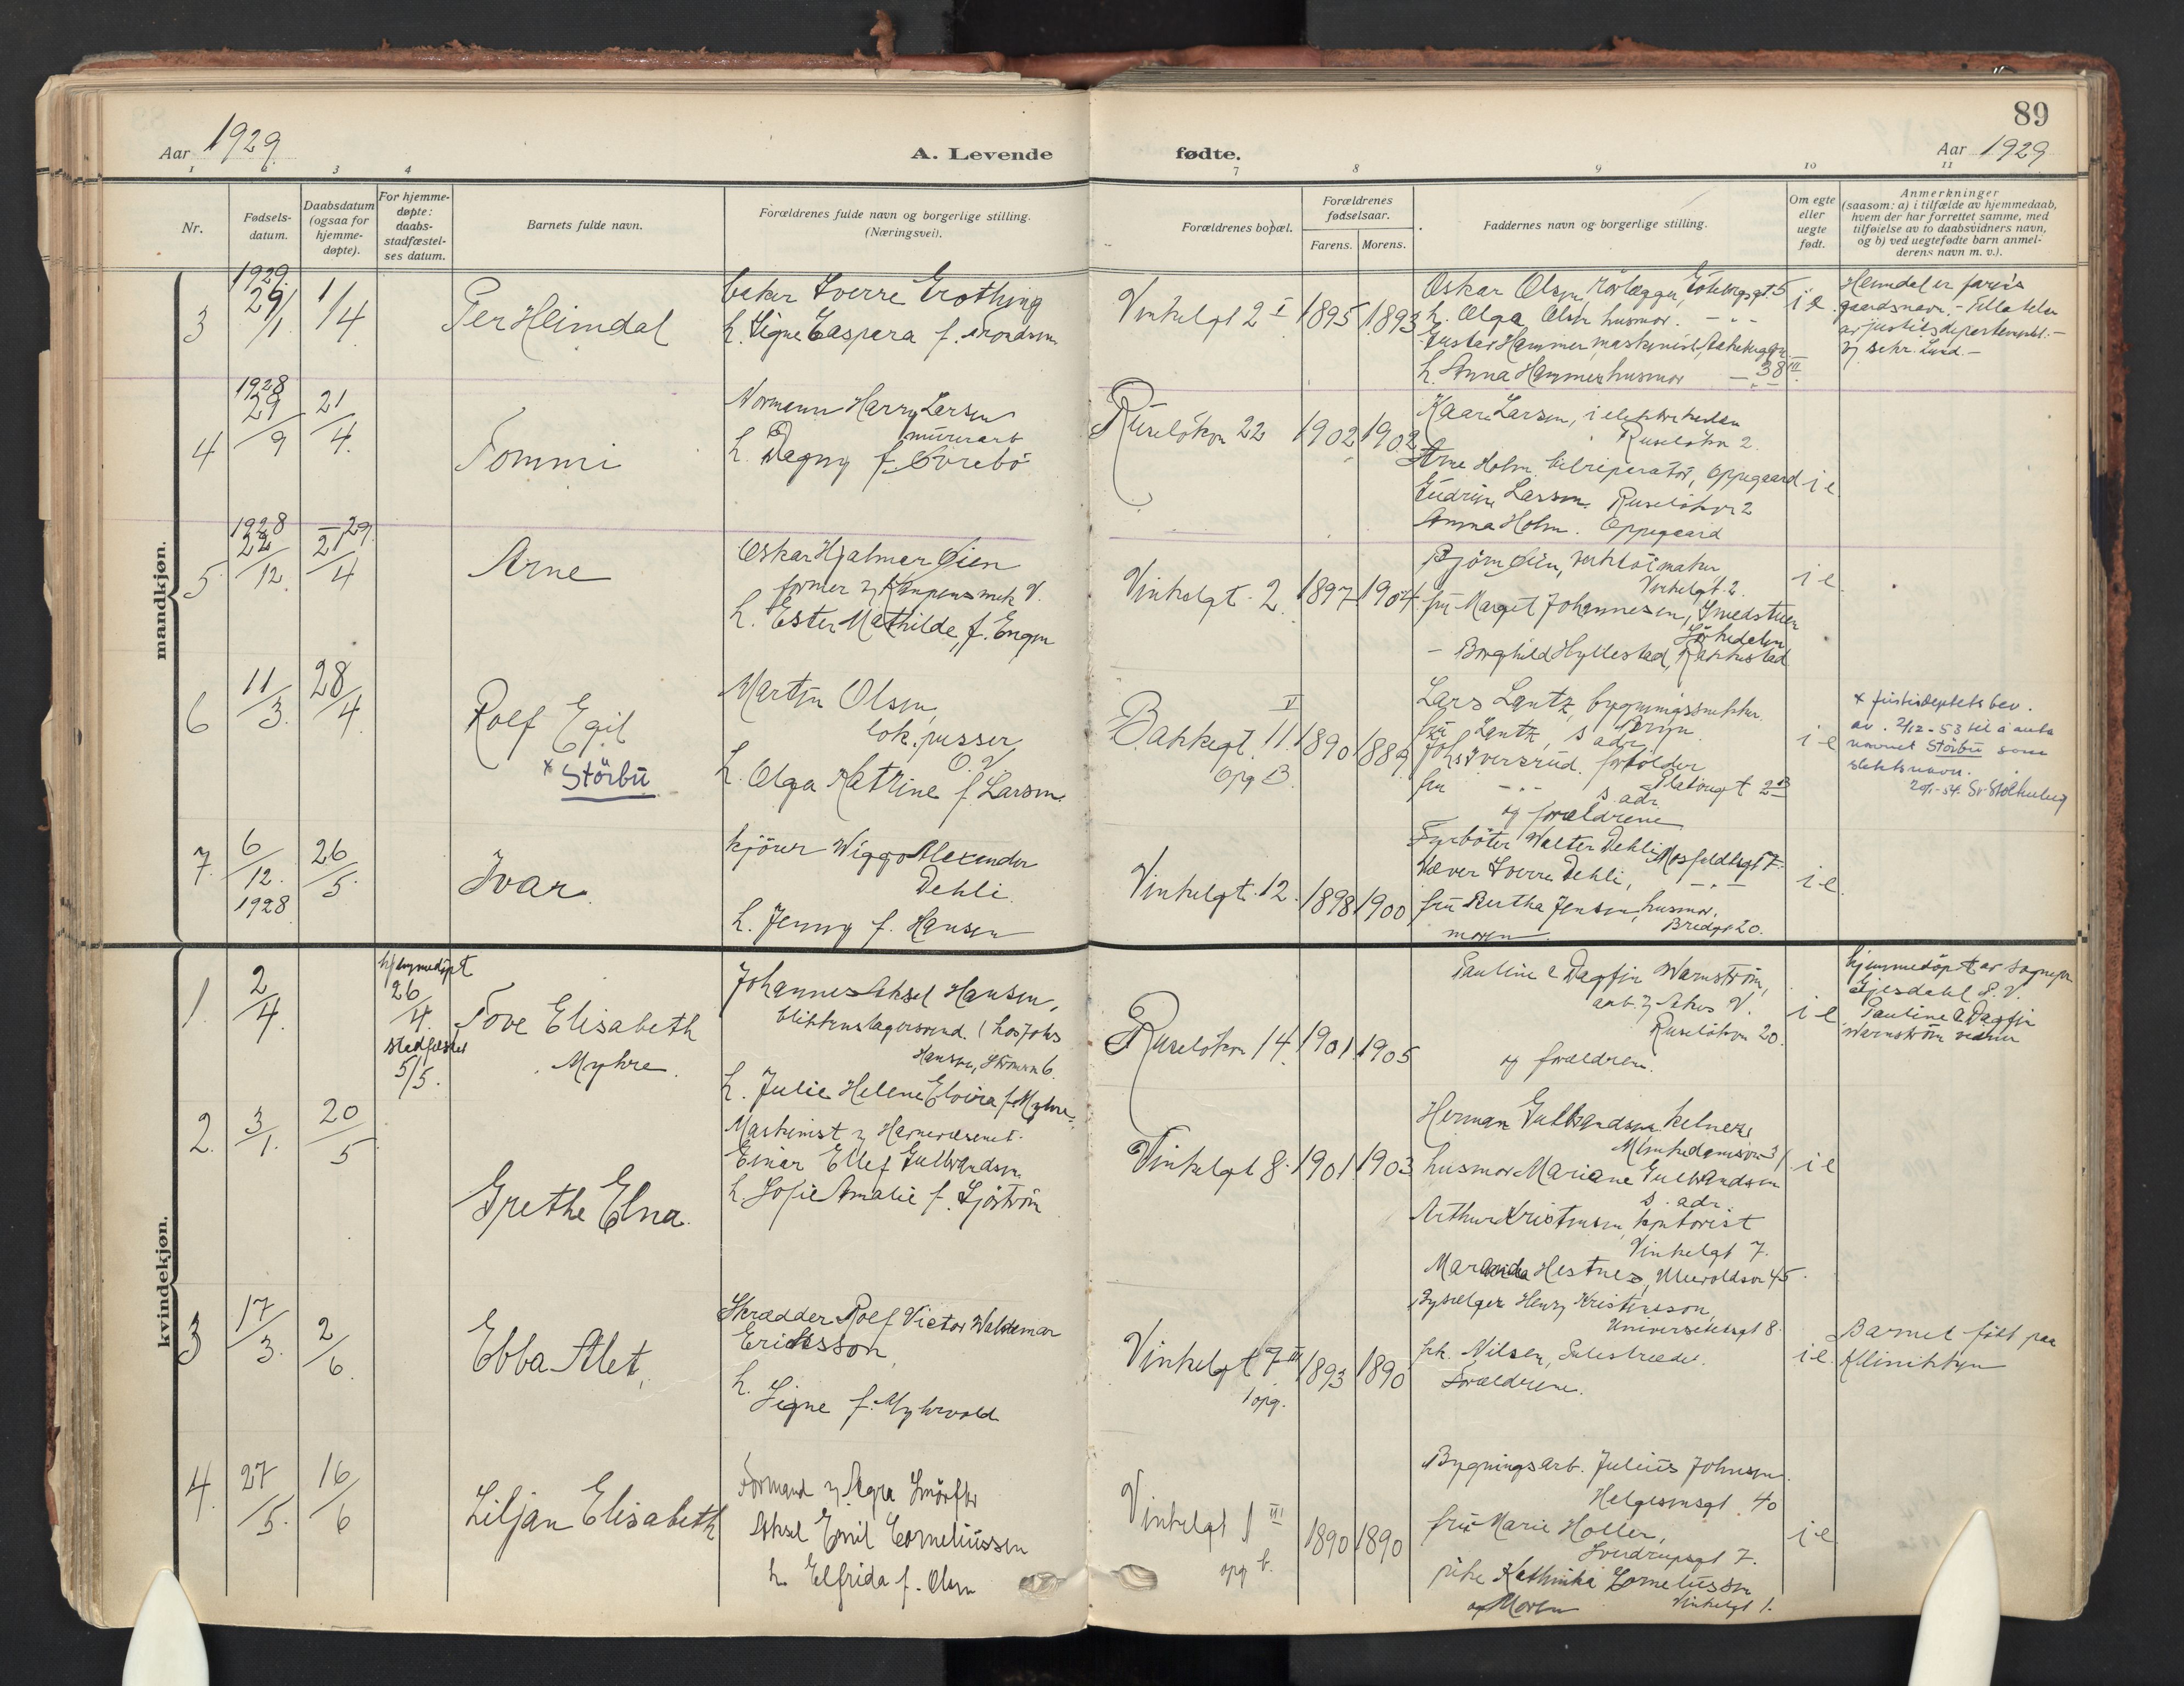 89
Aar 1929
A. Levende
fødte.
Aar 1929
1
3
4
7
8
9
10
11
Nr.
Fødsels-
datum.
Daabsdatum
(ogsaa for
hjemme-
døpte).
For hjemme-
døpte:
daabs-
stadfæstel-
ses datum.
Barnets fulde navn.
Forældrenes fulde navn og borgerlige stilling.
(Næringsvei).
Forældrenes bopæl.
Forældrenes
fødselsaar.
Farens.
Morens.
Faddernes navn og borgerlige stilling.
Om egte
eller
uegte
født.
Anmerkninger
(saasom: a) i tilfælde av hjemmedaab,
hvem der har forrettet samme, med
tilføielse av to daabsvidners navn,
og b) ved uegtefødte barn anmel-
derens navn m. v.).
mandkjøn.
3
1929
29/1
1/4
Per Heimdal
Sverre
h. Signe Caspara f.
Vinkelgt 2 I
1895
1893
Oskar Olsen, Rörlægger, Göteborggt. 5
h. Olga Olsen husmor. - " -
Gustav Hammer maskinist,
h. Anna Hammer husmor - " - 38 III
i e.
Heimdal er farens
gaardsnavn. - Tillatelse
av justisdepartementet. -
4
1928
29/9
21/4.
Tommi
Normann Harry Larsen
murerarb
h. Dagny f. Övrebö
Ruselökvn 22
1902
1902
Kaare Larsen,
Ruselökvn 2.
Arne Holm, bilreparatör, Oppegaard
Larsen. Ruselökvn 2
Anna Holm. Oppegaard
i e.
5
1928
22/12.
-29
21/4
Arne
Oskar Hjalmar Öien
former v/ Kampens mek V.
h. Ester Mathilde, f. Engen
Vinkelgt. 2
1897
1904
Björn Öien, verktöimaker
Vinkelgt. 2.
fru Margit Johannesen, Smedstuen
Sörkedalen
- Borghild Hyllestad, Rakkestad
i e.
6
11/3.
28/4.
Rolf Egil
x Störbu
Martin Olsen,
lok. pusser
O. V.
h. Olga Katrine f. Larsen
Bakkegt. 11. V
opg B.
1890
1889
Lars Lantz, bygningssnekker.
Bryn
fru Lantz, s adr.
Johs Iversrud. forvolder
Platougt 2 B
fru - " - s. adr.
og forældrene
i e
x Justisdeptets bev.
av. 2/12-53 til å anta
navnet Störbu som
slektsnavn.
20/1-54. Sv. Stoltenberg
7.
6/12.
1928
26/5.
Ivar.
kjörer Wiggo Alexander
Dehli.
h. Jenny f. Hansen
Vinkelgt. 12.
1898
1900
Fyrböter Walter Dehli, Mosfeldtsgt 7.
Væver Sverre Dehli, - " -
fru Bertha Jensen, husmor.
Bredgt 20.
moren.
i e.
kvindekjøn.
1.
2/4.
hjemmedöpt
26/4.
stadfæstet
5/5.
Tove Elisabeth
Myhre.
Johannes Aksel Hansen,
blikkenslagersvend. (hos Johs
Hansen, 6.
h. Julie Helene Elvira f. Myhre.
Ruselökvn 14.
1901
1905
Pauline & Dagfin Warnström,
arb. v/ Akers V.
Ruselökvn 20.
og forældrene.
i e
hjemmedöpt av sognepr
Gjesdahl S. V.
Pauline & Dagfin
Warnström vidner
2.
3/1.
20/5
Grethe Elna.
Maskinist v/ Havnevæsenet.
Einar Ellef Gulbrandsen
h. Sofie Amalie f. Sjöström
Vinkelgt 8.
1901.
1903
Herman Gulbrandsen kelner,
Munkedamsvn 31.
husmor Mariane Gulbrandsen
s. adr.
Arthur Kristensen, kontorist
Vinkelgt 7.
Hestnes, Ullevoldsvn 45.
i e
3
17/3.
2/6.
Ebba Alet,
Skrædder Rolf Victor Waldemar
Ericksson,
h.
Signe f. Myhrvold
Vinkelgt 7 III
1 opg.
1893
1890
Bysælger Henry Kristensson,
Universitetsgt 8.
frk. Nilsen,
Forældrene.
i e.
Barnet födt paa
Klinikken
4.
27/5.
16/6
Liljan Elisabeth
Formand v/ Agra Smörfbr
Aksel Emil Corneliussen
h. Elfrida f. Olsen
Vinkelgt 1 III
opg b.
1890
1890
Bygningsarb. Julius Johnsen.
Helgesensgt. 40
fru Marie Holter,
Sverdrupsgt 7.
pike Kathinka Corneliussen
Vinkelgt 1.
og Moren
i e.